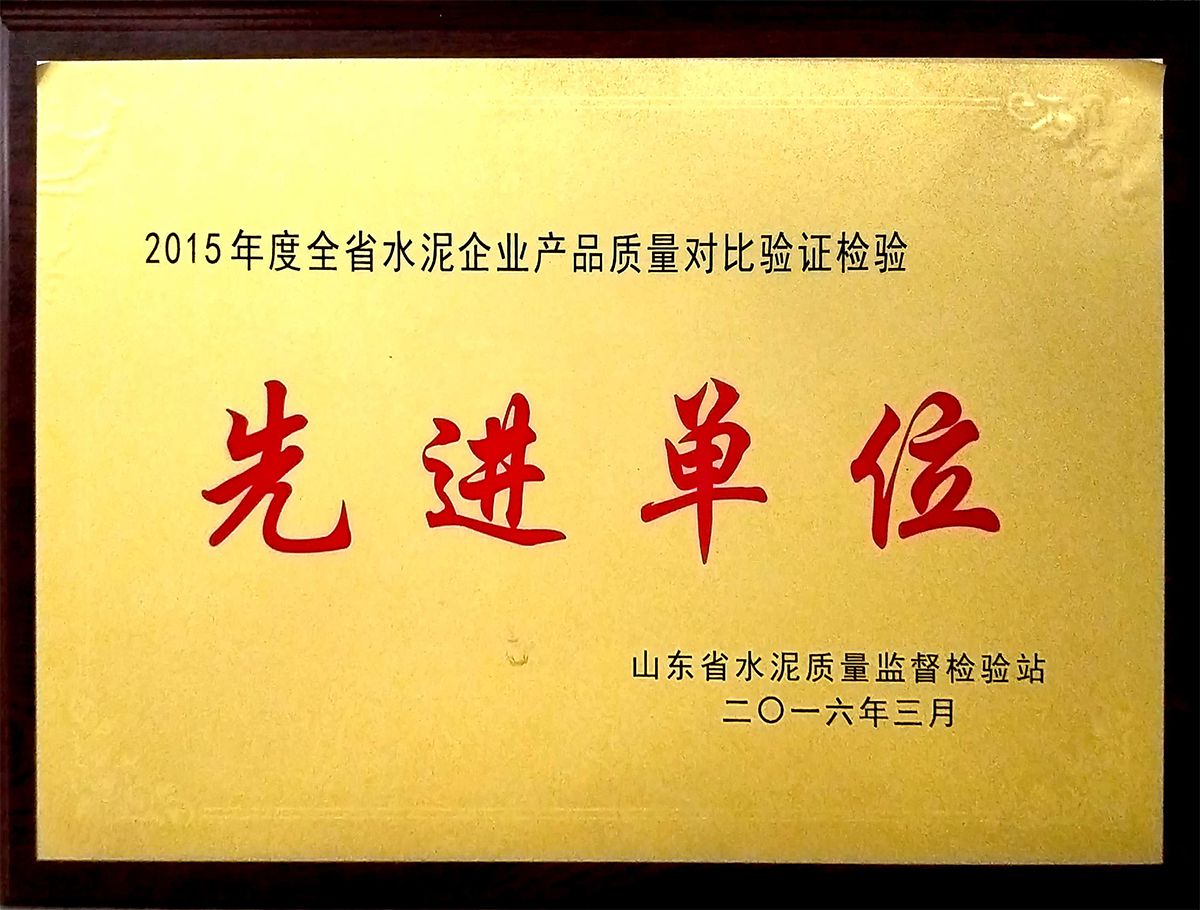 2015年度全省水泥企业产品质量对比验证检验
先进单位
山东省水泥质量监督检验站
二〇一六年三月